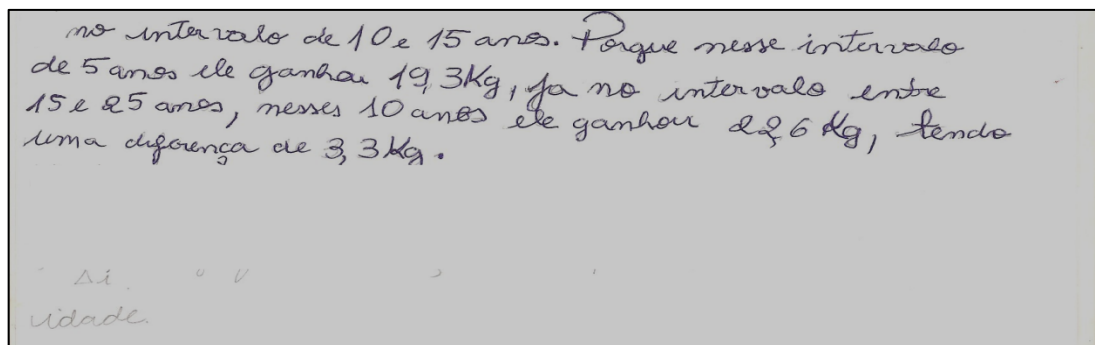 no intervalo de 10 e 15 anos. Porque nesse intervalo
de 5 anos ele ganhou 19,3Kg, ja no intervalo entre
15 e 25 anos, nesses 10 anos ele ganhou 22,6 Kg, tendo
uma diferença de 3,3Kg.
Δi
vidade.